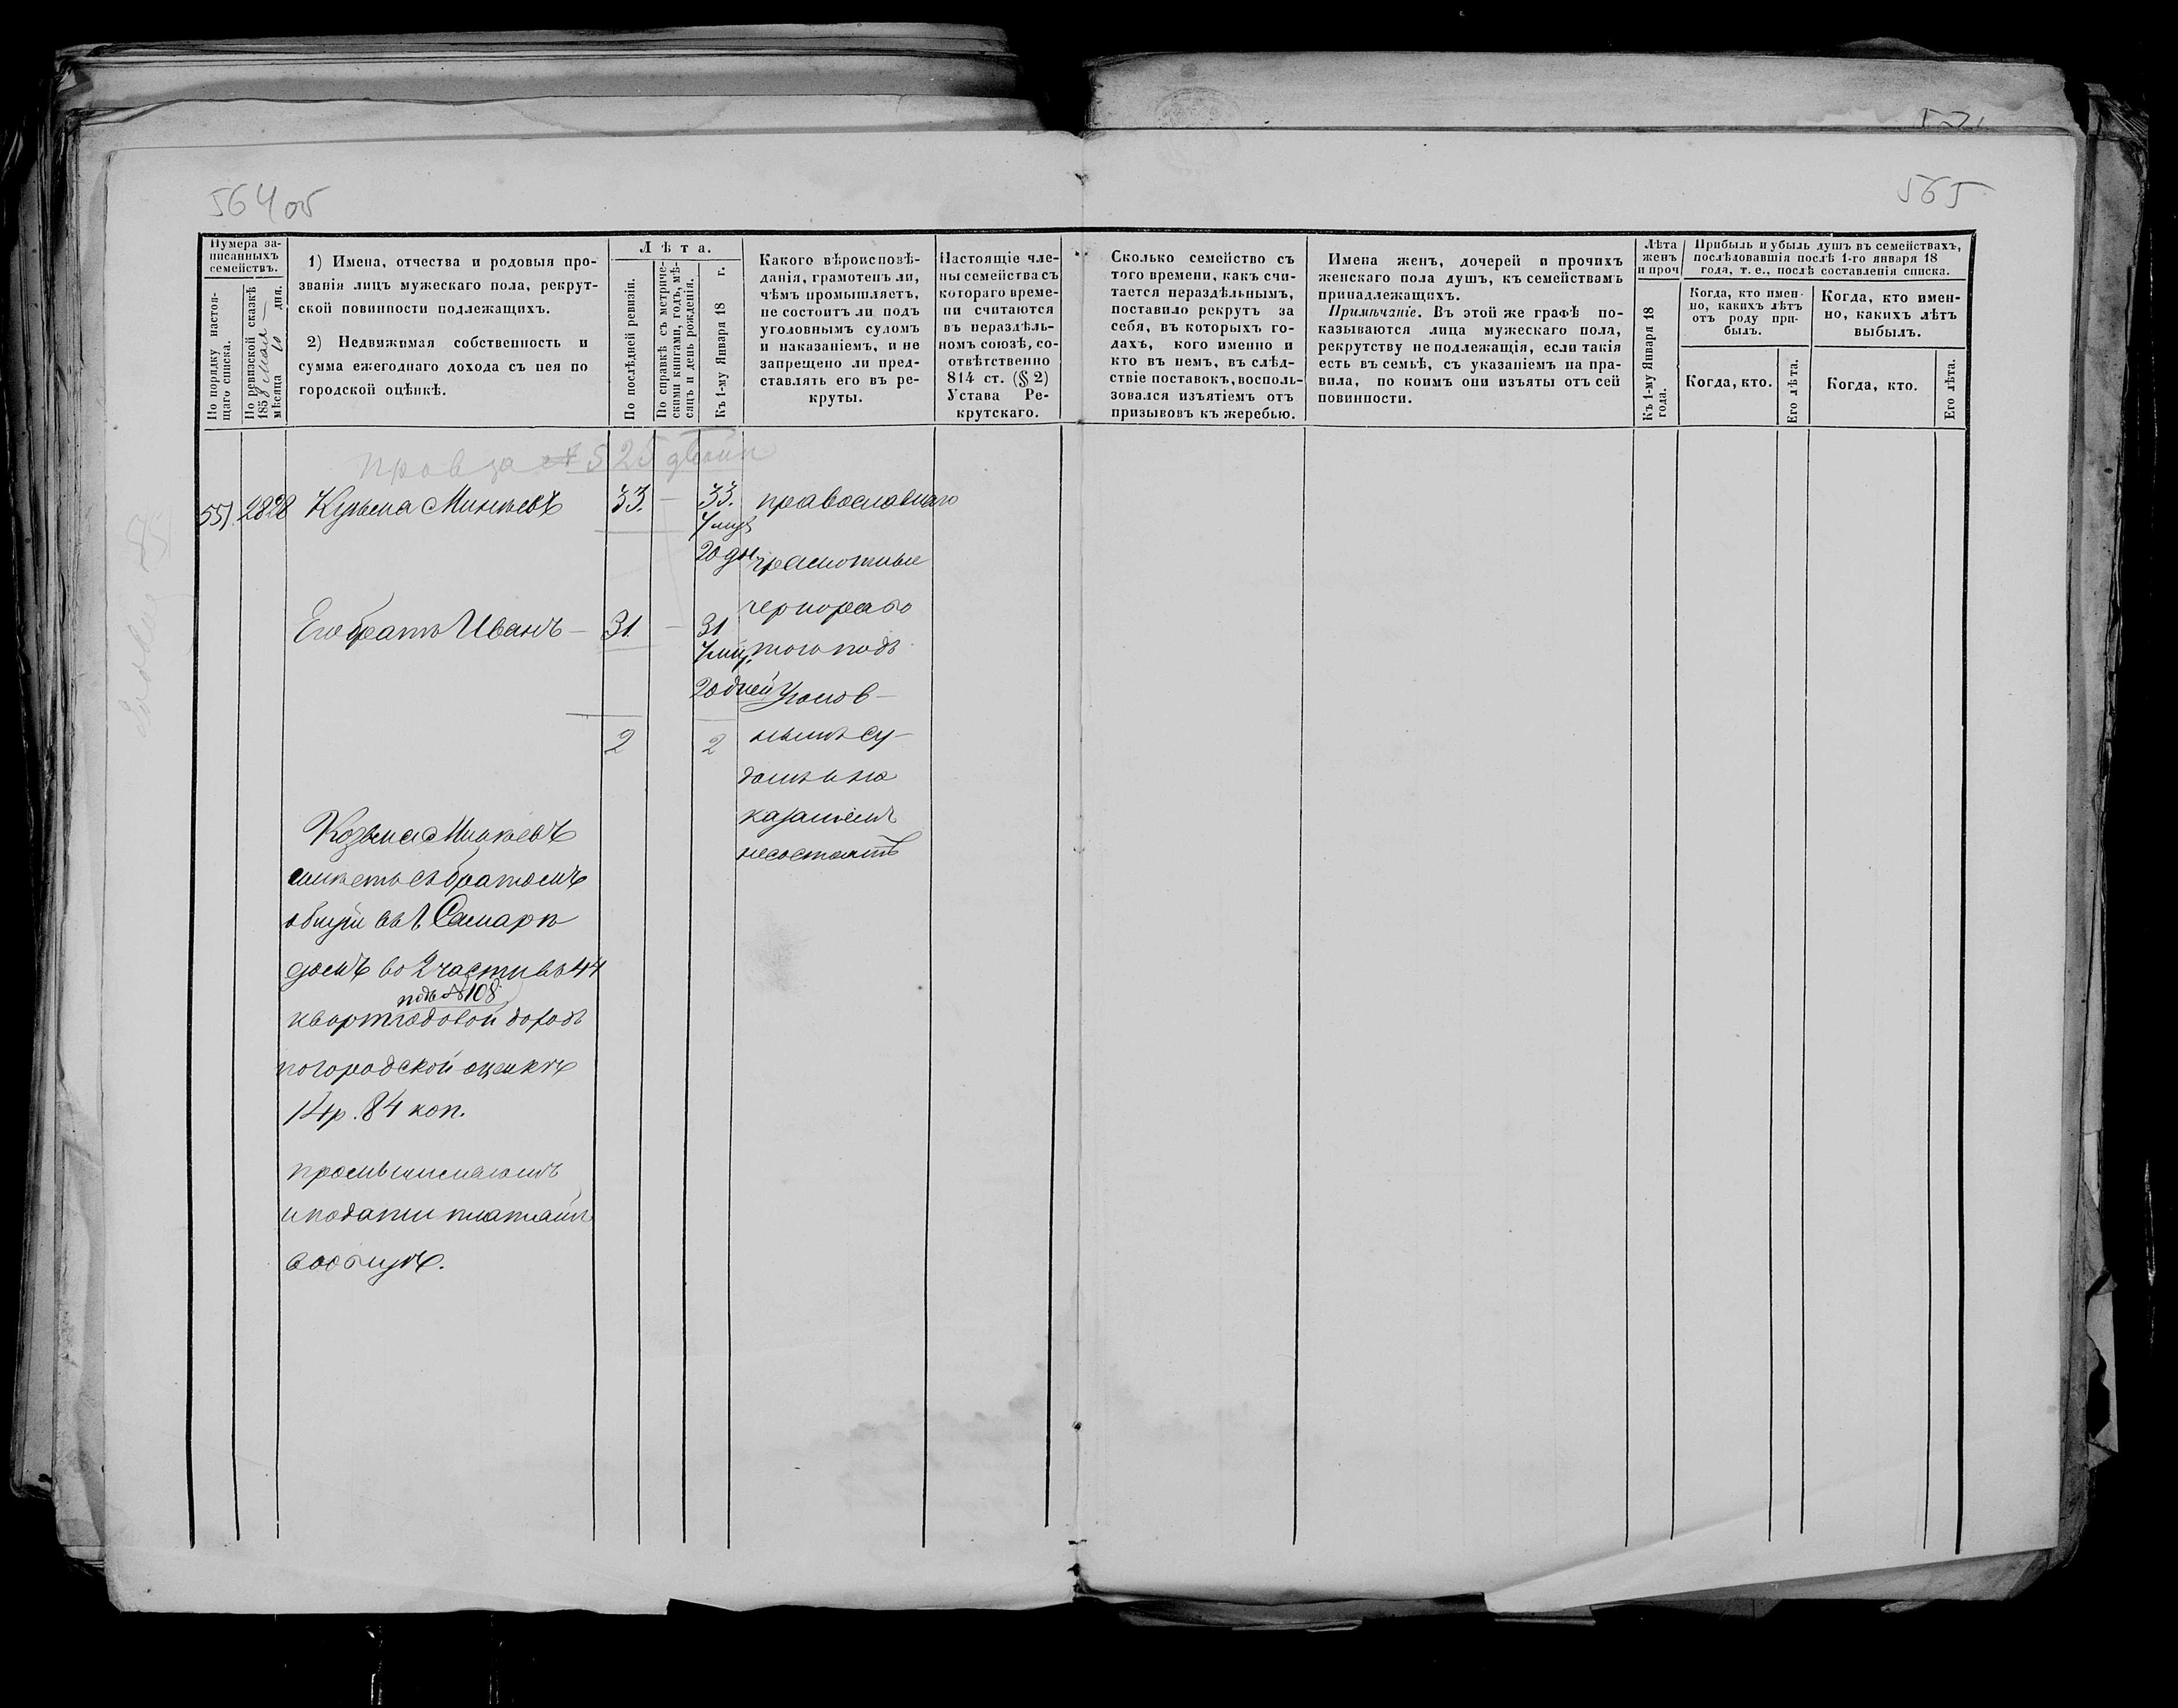 564 об
565
Нумера за-
писанныхъ
семействъ.
По порядку настоя-
щаго списка.
По ревизской сказкѣ
1858 мая —
мѣсяца 10 дня.
1) Имена, отчества и родовыя про-
званія лицъ мужескаго пола, рекрут-
ской повинности подлежащихъ.
2) Недвижимая собственность и
сумма ежегоднаго дохода съ нея по
городской оцѣнкѣ.
Лѣта.
По послѣдней ревизіи.
По справкѣ съ метриче-
скими книгами, годъ, мѣ-
сяцъ и день рожденія.
Къ 1-му Января 18 г.
Какого вѣроисповѣ-
данія, грамотенъ ли,
чѣмъ промышляетъ,
не состоитъ ли подъ
уголовнымъ судомъ
и наказаніемъ, и не
запрещено ли пред-
ставлять его въ ре-
круты.
Настоящіе чле-
ны семейства съ
котораго време-
ни считаются
въ нераздѣль-
номъ союзѣ, со-
отвѣтственно
814 ст. (§ 2)
Устава Ре-
крутскаго.
Сколько семейство съ
того времени, какъ счи-
тается нераздѣльнымъ,
поставило рекрутъ за
себя, въ которыхъ го-
дахъ, кого именно и
кто въ немъ, въ слѣд-
ствіе поставокъ, восполь-
зовался изъятіемъ отъ
призывовъ къ жеребью.
Имена женъ, дочерей и прочихъ
женскаго пола душъ, къ семействамъ
принадлежащихъ.
Примѣчаніе. Въ этой же графѣ по-
казываются лица мужескаго пола,
рекрутству не подлежащія, если такія
есть въ семьѣ, съ указаніемъ на пра-
вила, по коимъ они изъяты отъ сей
повинности.
Лѣта
женъ
и проч
Къ 1-му Января 18
года.
Прибыль и убыль душъ въ семействахъ,
послѣдовавшія послѣ 1-го января 18
года, т. е., послѣ составленія списка.
Когда, кто имен-
но, какихъ лѣтъ
отъ роду при-
былъ.
Когда, кто.
Его лѣта.
Когда, кто имен-
но, какихъ лѣтъ
выбылъ.
Когда, кто.
Его лѣта.
пров за № 525
551. 2828 Кузьма Минѣевъ 33. — 33.
7 мцѣ
20 дн
Его братъ Иванъ — 31. — 31
7 мцъ
20 дней
2 2
православнаго
грамотные
чернорабо
того подъ
Уголов-
нымъ су-
домъ и на
казаніемъ
несостоятъ
Козьма Минѣевъ
имѣетъ съ братомъ
общій въ г. Самарѣ
домъ во 2 части въ 44
подъ № 108
кварт годовой доходъ
погородской оценкѣ
14 р. 84 коп.
промышляютъ
и подати платятъ
вообще.